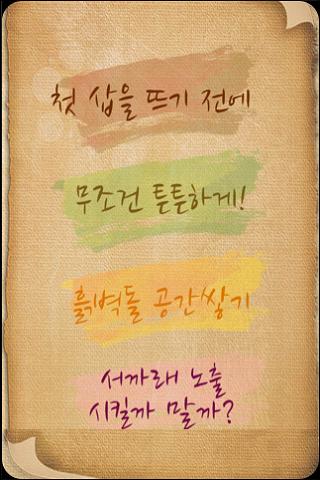 첫 삽을 뜨기 전에
무조건 튼튼하게!
흙벽돌 공간쌓기
서까래 노출
시킬까 말까?